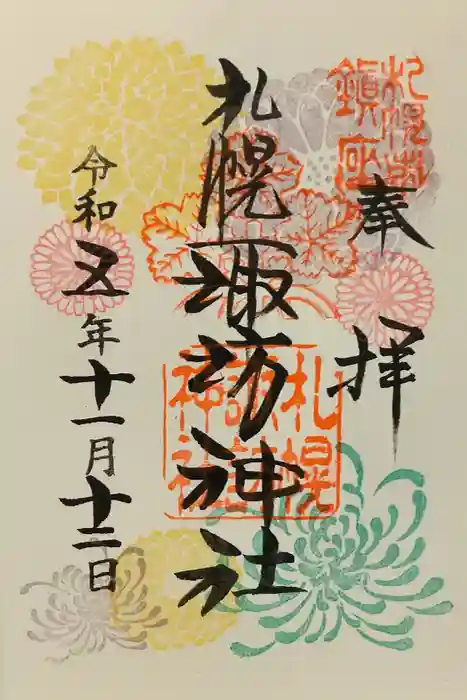 奉拝
札幌諏訪神社
令和五年十一月十二日
札幌市
鎮座
札幌
諏訪
神社